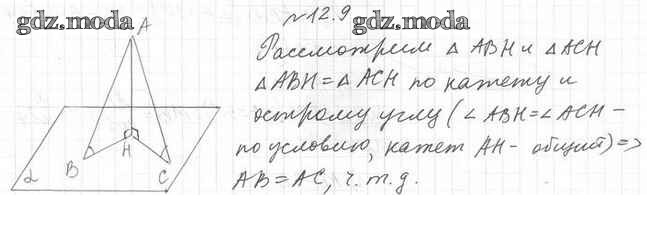 №12.9
gdz.moda
gdz.moda
A
Рассмотрим △ ABH и △ ACH
△ABH = △ ACH по катету и
острому углу (∠ ABH=∠ ACH –
по условию, катет AH - общий) =>
AB = AC, ч. т. д.
B
H
C
α